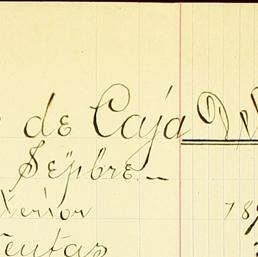 de Caja
Sepbre.—
terior 189
Ventas